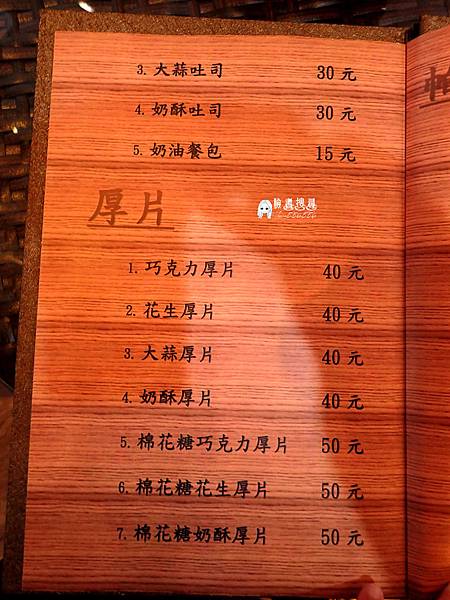 3. 大蒜吐司 30 元
4. 奶酥吐司 30 元
5. 奶油餐包 15 元
臉書搜尋
厚片
1. 巧克力厚片 40 元
2. 花生厚片 40 元
3. 大蒜厚片 40 元
4. 奶酥厚片 40 元
5. 棉花糖巧克力厚片 50 元
6. 棉花糖花生厚片 50 元
7. 棉花糖奶酥厚片 50 元